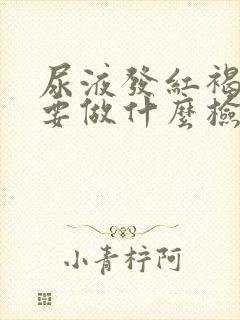 尿液發紅褐
要做什麼檢
小青梓阿